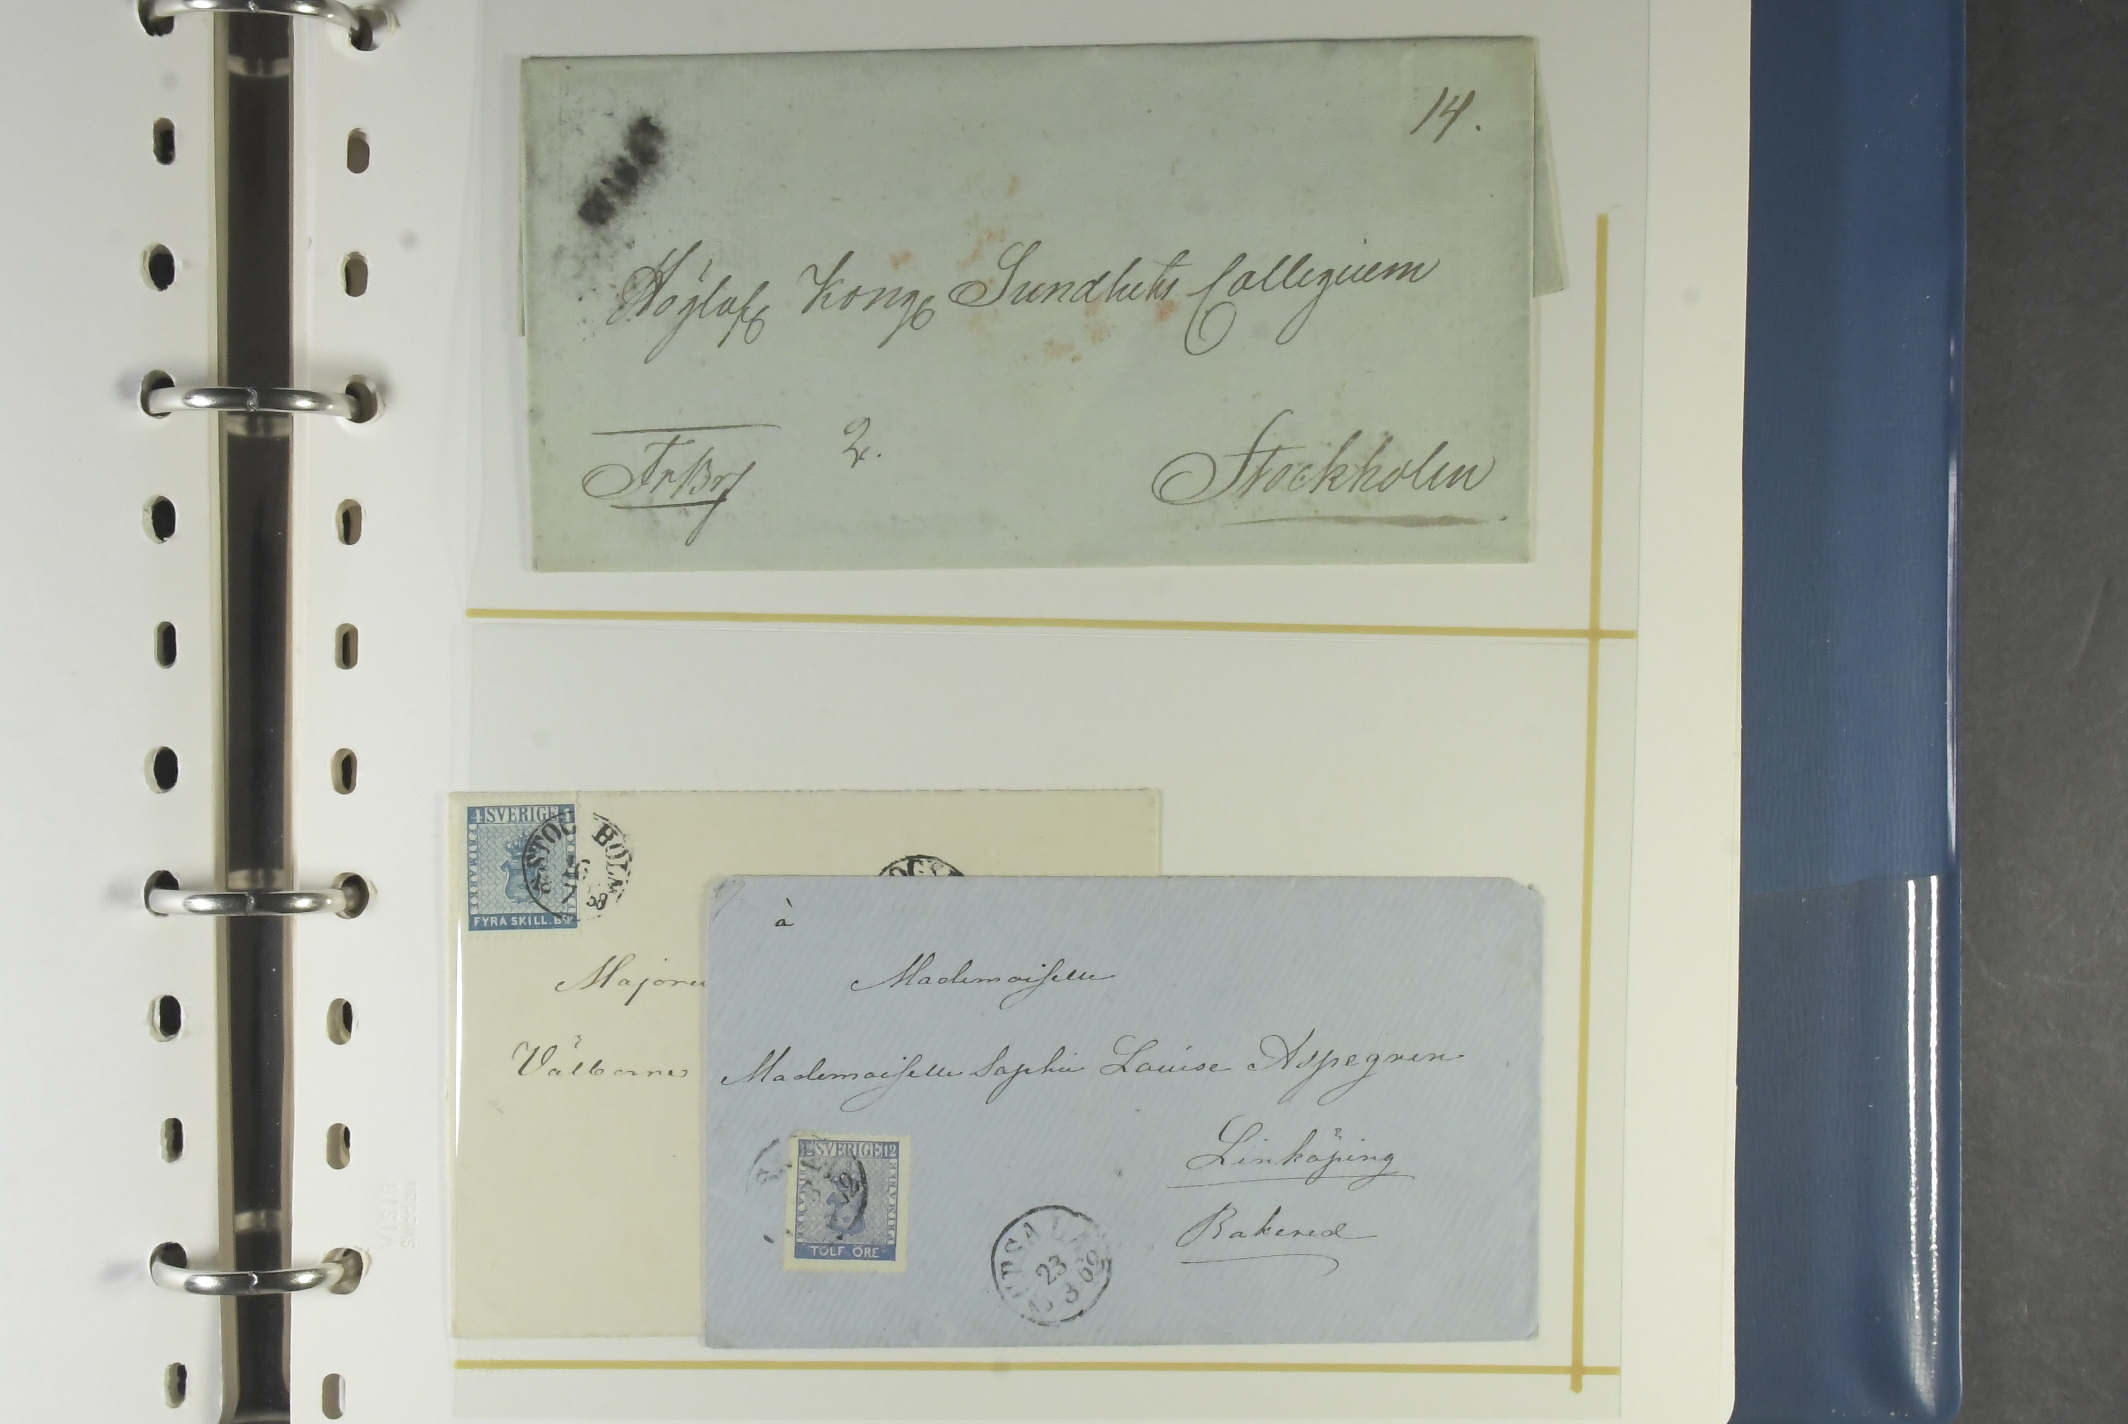 14.
Högl. Kongl. Sundhets Collegium
Fr Br 2. Stockholm
4 SVERIGE 4
FYRA SKILL. BCO
Majoren
Välborne
à
Mademoiselle
Mademoiselle Sophie Louise Aspegren
Linköping
Bakered
12 SVERIGE 12
FRIMÄRKE
TOLF ÖRE
UPSALA
23
3
62
VISIR
Sweden